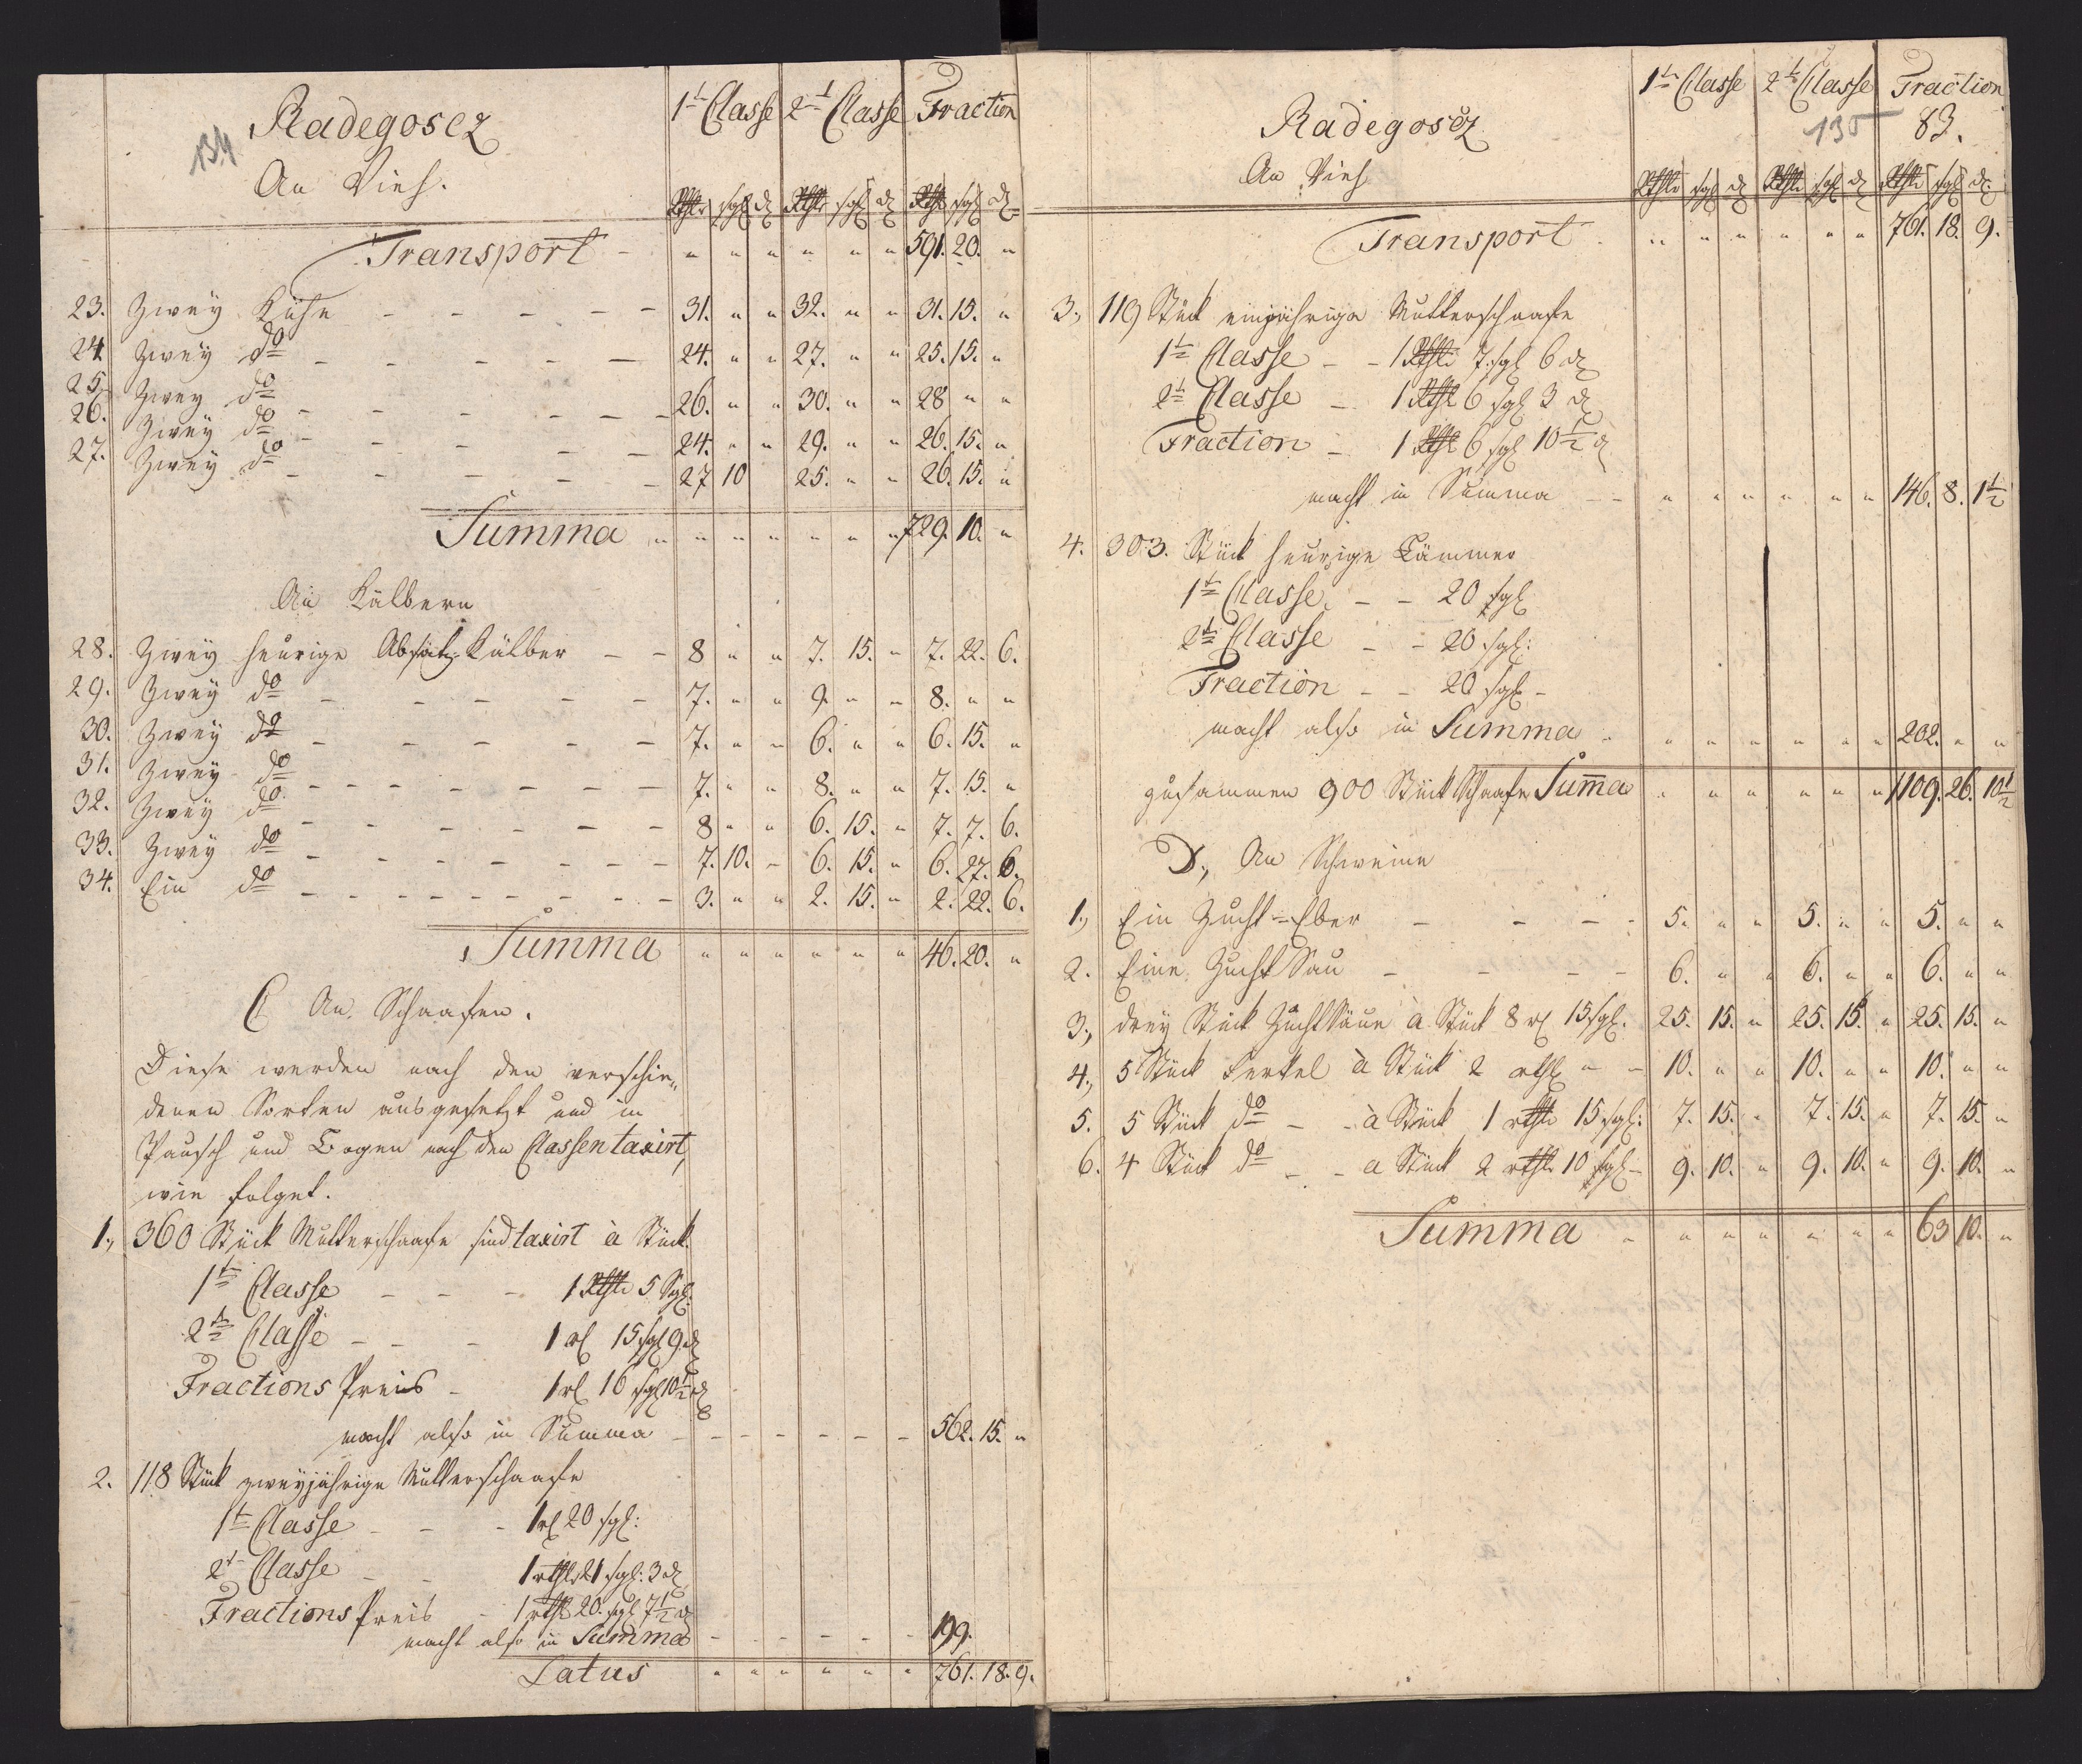 134
Radegosez
An Vieh.
1te Classe 2te Classe Fraction
Rthlr sgl d Rthlr sgl d Rthl sgl d
Transport - " " " " " " 591. 20. "
23. Zwey Kühe - - - - - 31. " " 32. " " 31. 15. "
24. Zwey do - - - - - 24. " " 27. " " 25. 15. "
25. Zwey do - - - - - 26. " " 30. " " 28 " "
26. Zwey do - - - - - 24. " " 29. " " 26. 15. "
27. Zwey do - - - - - 27 10 25. " " 26. 15. "
Summa " " " " " " " 729. 10. "
An Kälbern
28. Zwey heurige Absatz-Kälber - - 8 " " 7. 15. " 7. 22. 6.
29. Zwey do - - - - - 7. " " 9. " " 8. " "
30. Zwey do - - - - - 7. " " 6. " " 6. 15. "
31. Zwey do - - - - - - 7. " " 8. " " 7. 15. "
32. Zwey do - - - - - - 8 " " 6. 15. " 7. 7. 6.
33. Zwey do - - - - - - 7. 10. - 6. 15. " 6. 27. 6.
34. Ein do - - - - - - - 3. " " 2. 15. " 2. 22. 6.
Summa " " " " " " 46. 20. "
C An Schaafen.
Diese werden nach den verschie-
denen Sorten ausgesetzt und in
Pausch und Bogen nach den Classen taxirt,
wie folget.
1., 360 Stück Mutterschaafe sind taxirt à Stück
1te Classe - - - 1 Rthlr 5 Sgl.
2te Classe - - - 1 rl 15 sgl 9 d
Fractions Preis - 1 rl 16 sgl 10 1/2 d
macht also in Summa - - - - - - - 562. 15. "
2. 118 Stück zweyjährige Mutterschaafe
1te Classe - - - 1 rl 20 sgl:
2te Classe - - 1 rthlr 21 sgl: 3 d
Fractions Preis - 1 rthl 20. sgl 7 1/2 d
macht also in Summa - - - - - - 199.
Latus " " " " " " 761. 18. 9.
1te Classe 2te Classe Fraction
135 83.
Radegosez
An Vieh
Rthlr sgl d Rthlr sgl d Rthlr sgl d.
Transport " " " " " " 761. 18. 9.
3., 119 Stück einjährige Mutterschaafe
1te Classe - - 1 Rthlr 7. sgl 6 d
2te Classe - 1 Rthl 6 sgl 3 d
Fraction - 1 Rthl 6 sgl 10 1/2 d
macht in Summa - - " " " " " " 146. 8. 1 1/2
4. 303. Stück heurige Lämmer
1te Classe - - 20 sgl
2te Classe - - 20 sgl:
Fraction - - 20 sgl -
macht also in Summa " " " " " " " 202. " "
zusammen 900 Stück Schaafe Summa " " " " " " 1109. 26. 10 1/2
D., An Schweine
1., Ein Zucht-Eber - - - - 5. " " 5. " " 5. " "
2. Eine Zucht Sau - - - - 6. " " 6. " " 6. " "
3., drey Stück Zucht Säue à Stück 8 rl 15 sgl. 25. 15. " 25. 15. " 25. 15. "
4., 5 Stück Ferkel à Stück 2 rthl - - 10. " " 10. " " 10. " "
5. 5 Stück do - - à Stück 1 rthlr 15 sgl: 7. 15. " 7. 15. " 7. 15. "
6. 4 Stück do - - à Stück 2 rthlr 10 sgl - 9. 10. " 9. 10. " 9. 10. "
Summa " " " " " " " 63 10. "